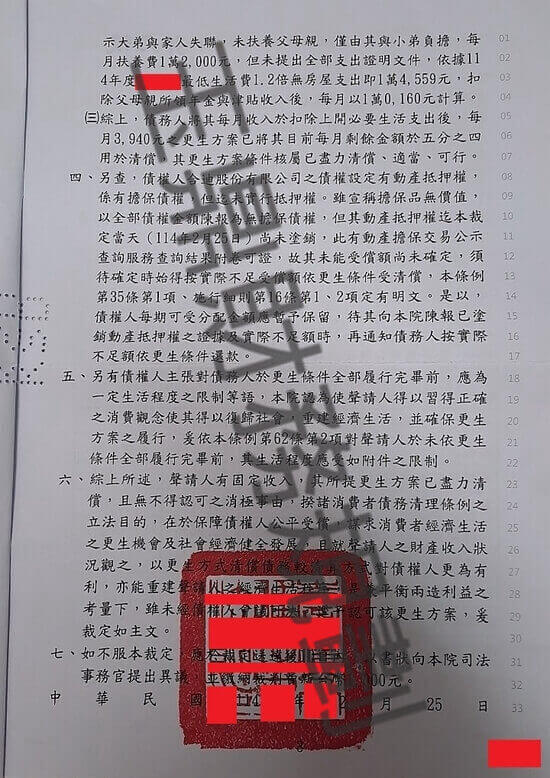 示大弟與家人失聯，未扶養父母親，僅由其與小弟負擔，每 01
月扶養費1萬2,000元，但未提出全部支出證明文件，依據11 02
4年度 最低生活費1.2倍無房屋支出即1萬4,559元，扣 03
除父母親所領年金與津貼收入後，每月以1萬0,160元計算。 04
㈢綜上，債務人將其每月收入於扣除上開必要生活支出後，每 05
月3,940元之更生方案已將其目前每月剩餘金額於五分之四 06
用於清償，其更生方案條件核屬已盡力清償、適當、可行。 07
四、另查，債權人合迪股份有限公司之債權設定有動產抵押權， 08
係有擔保債權，但迄未實行抵押權。雖宣稱擔保品無價值， 09
以全部債權金額陳報為無擔保債權，但其動產抵押權迄本裁 10
定當天（114年2月25日）尚未塗銷，此有動產擔保交易公示 11
查詢服務查詢結果附卷可證，故其未能受償額尚未確定，須 12
待確定時始得按實際不足受償額依更生條件受清償，本條例 13
第35條第1項、施行細則第16條第1、2項定有明文。是以， 14
債權人每期可受分配金額應暫予保留，待其向本院陳報已塗 15
銷動產抵押權之證據及實際不足額時，再通知債務人按實際 16
不足額依更生條件還款。 17
五、另有債權人主張對債務人於更生條件全部履行完畢前，應為 18
一定生活程度之限制等語，本院認為使聲請人得以習得正確 19
之消費觀念使其得以復歸社會，重建經濟生活，並確保更生 20
方案之履行，爰依本條例第62條第2項對聲請人於未依更生 21
條件全部履行完畢前，其生活程度應受如附件之限制。 22
六、綜上所述，聲請人有固定收入，其所提更生方案已盡力清 23
償，且無不得認可之消極事由，揆諸消費者債務清理條例之 24
立法目的，在於保障債權人公平受償，謀求消費者經濟生活 25
之更生機會及社會經濟健全發展，且就聲請人之財產收入狀 26
況觀之，以更生方式清償債務較清算方式對債權人更為有 27
利，亦能重建聲請人之經濟生活程序，是於平衡兩造利益之 28
考量下，雖未經債權人會議可決，逕予認可該更生方案，爰 29
裁定如主文。 30
七、如不服本裁定，應於裁定送達後10日內，以書狀向本院司法 31
事務官提出異議，並繳納裁判費新台幣1,000元。 32
中華民國114年2月25日 33
3